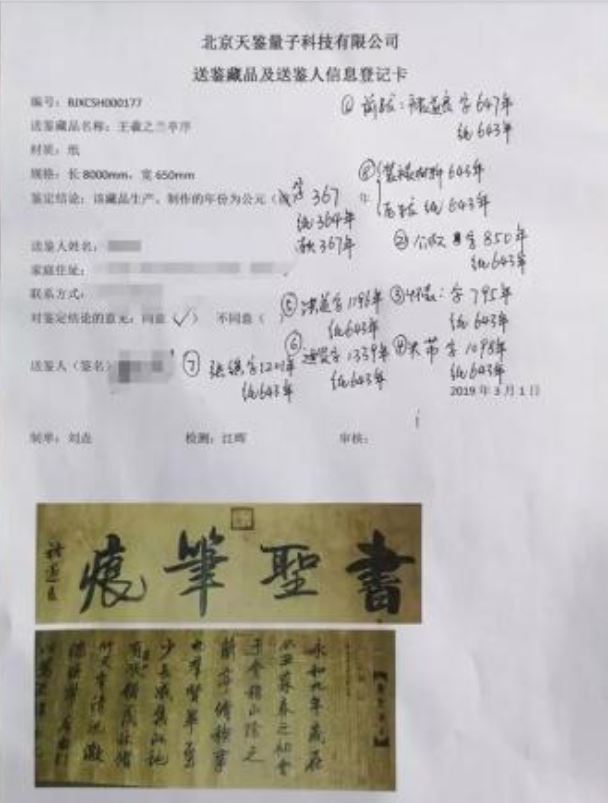 北京天鉴量子科技有限公司
送鉴藏品及送鉴人信息登记卡
编号：BJXCSH000177
① 前跋：褚遂良 字 647年
纸 643年
送鉴藏品名称：王羲之兰亭序
材质：纸
规格：长 8000mm，宽 650mm
⑧ 643年
纸 643年
鉴定结论：该藏品生产、制作的年份为公元（ 字 367 年
纸 364年
367年
② 公权 字 850年
纸 643年
送鉴人姓名：
家庭住址：
联系方式：
③ 怀素：字 795年
纸 643年
⑤ 字 1196年
纸 643年
对鉴定结论的意见：同意（ ✓ ） 不同意（ ）
⑥ 字 1339年
纸 643年
④ 米芾 字 1098年
纸 643年
送鉴人（签名）
⑦ 字 1201年
纸 643年
2019 年 3 月 1 日
制单：刘垚 检测：江晖 审核：
書聖筆痕
褚遂良
永和九年歲在
癸丑暮春之初會
于會稽山陰之
蘭亭脩稧事
也羣賢畢至
少長咸集此地
有峻領茂林脩
竹又有清流激